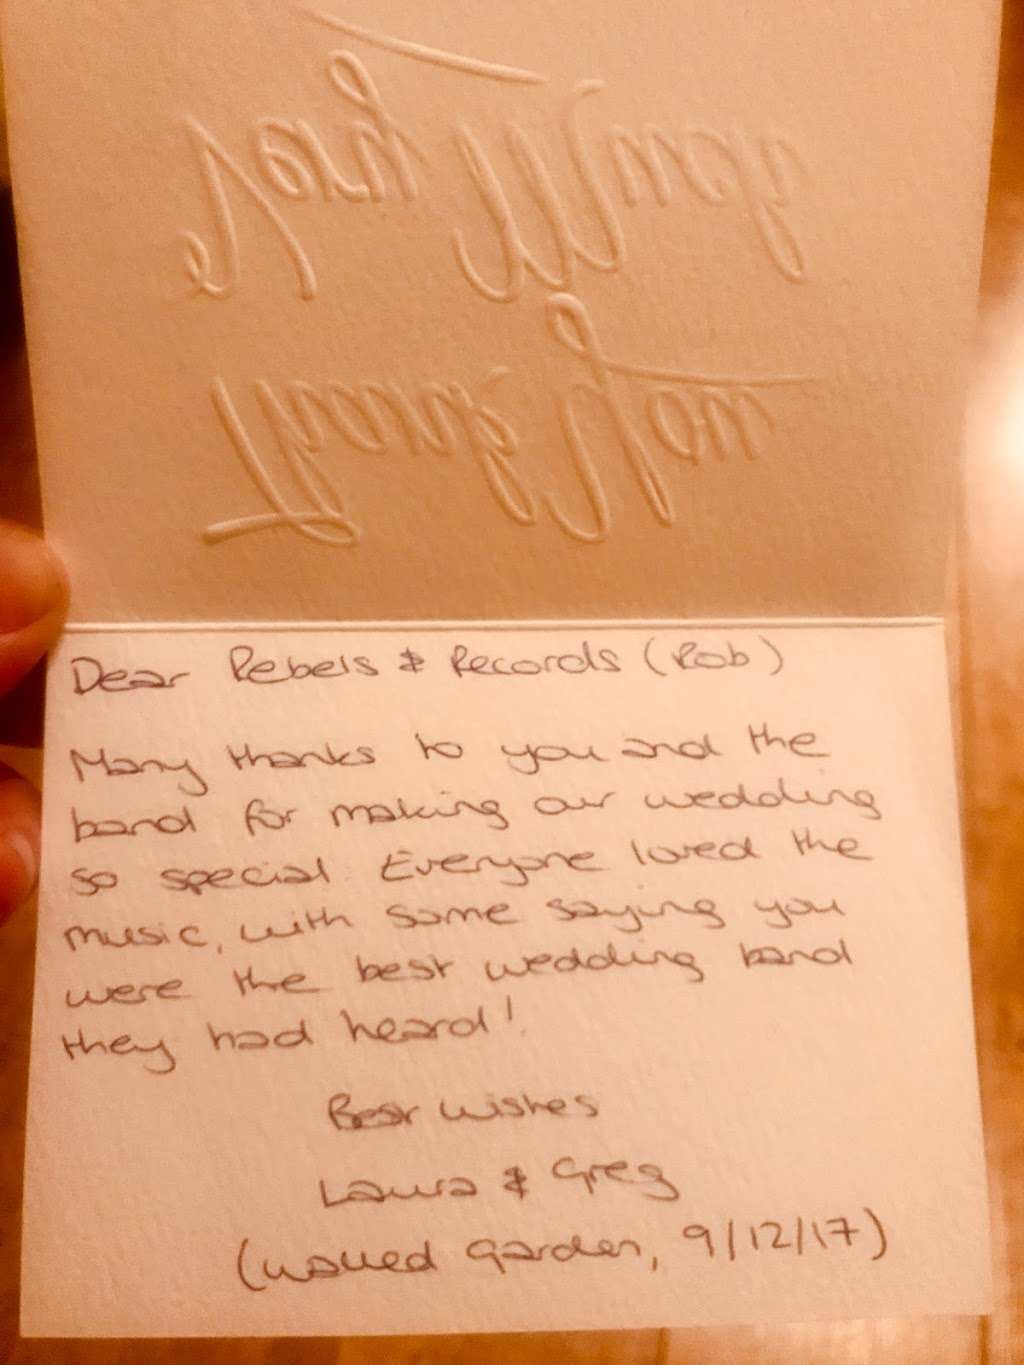 Thank You
Very Much
Dear Rebels & Records (Rob)
Many thanks to you and the
band for making our wedding
so special. Everyone loved the
music, with some saying you
were the best wedding band
they had heard!
Best Wishes
Laura & Greg
(Walled Garden, 9/12/17)